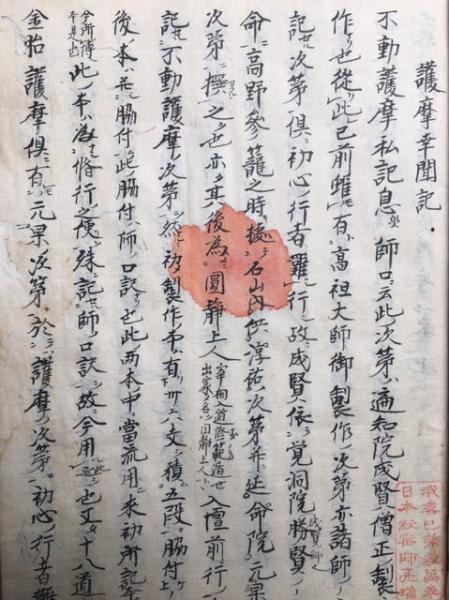 護摩幸聞記
不動護摩私記息災 師口云此次第ハ遍知院成賢僧正製
作也從此已前雖有高祖大師御製作ノ次第亦諸師ノ
記セル次第俱ニ初心行者難行故ニ成賢依覚洞院勝賢成賢ノ師之
命高野參籠之時據石山內供淳祐ノ次第并延命院元杲
次第撰之也亦其後為圓靜上人入壇前行
記不動護摩次第然初製作本有卅八支積五段脇付
後本ニ脇付此脇付師口訣也此兩本中當流用來初所記本
今所傳本是也
此本為脩行之便殊記師口訣故今用之也又十八道
金胎護摩俱有元杲次第於護摩次第初心行者難